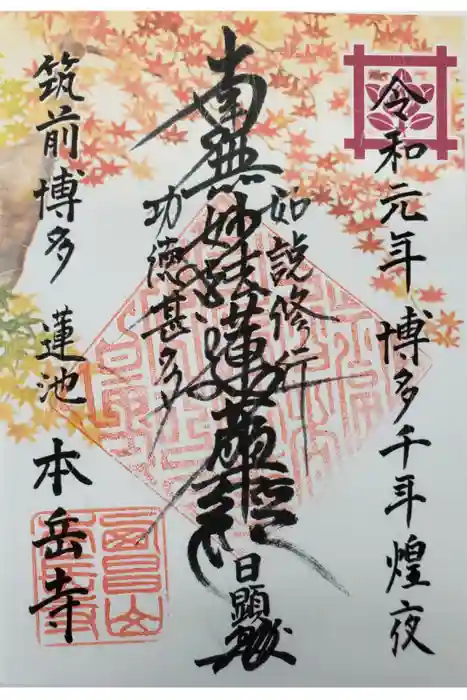 令和元年 博多千年煌夜
如説修行
南無妙法蓮華経
功徳甚多
日顕
筑前博多 蓮池 本岳寺